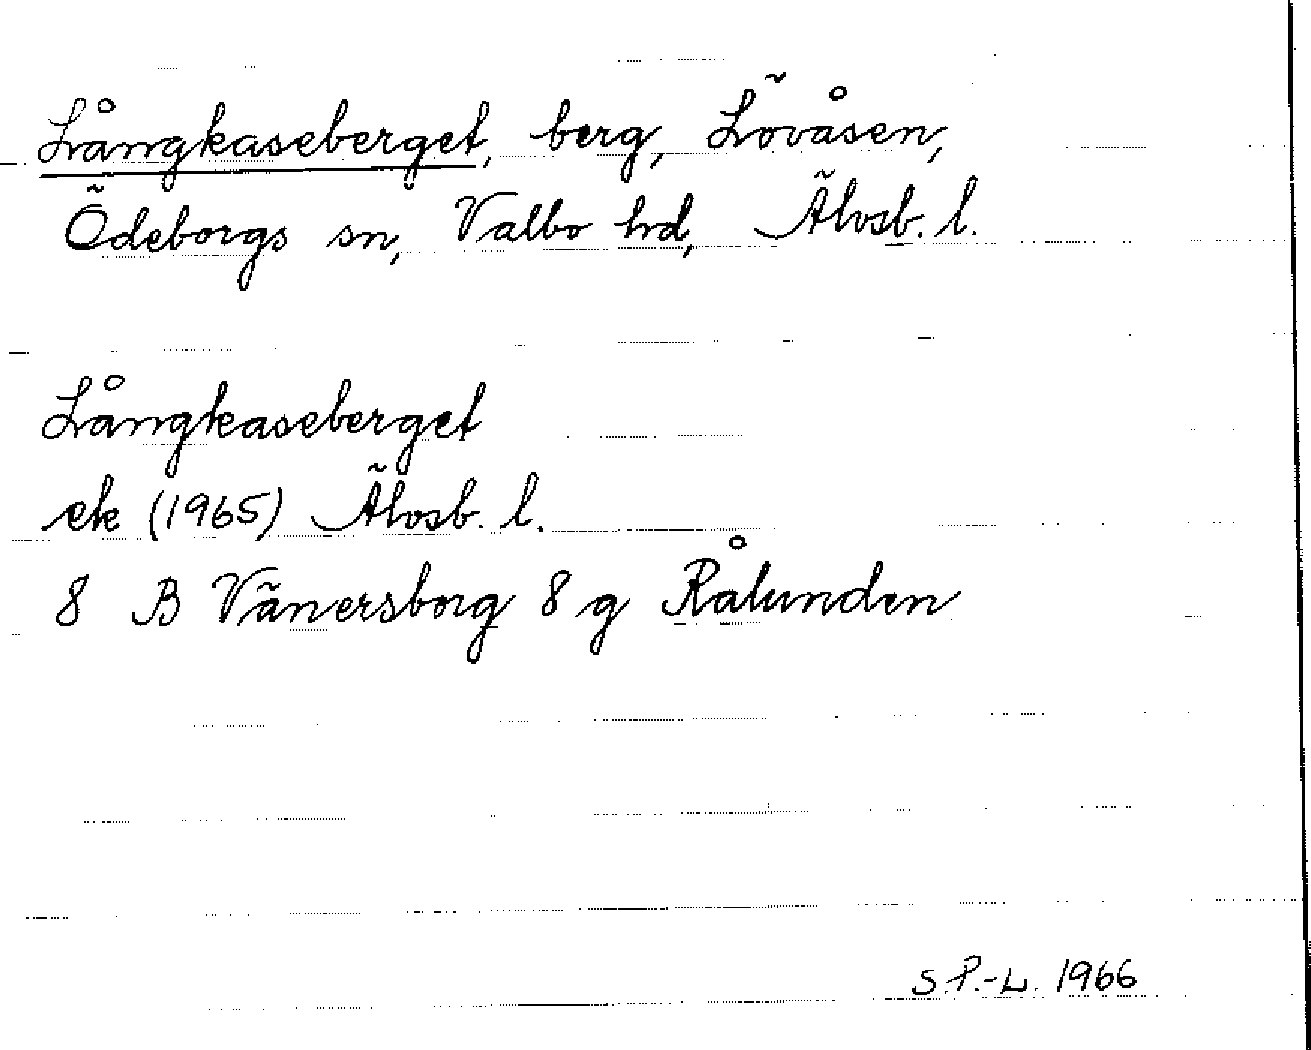 Långkaseberget, berg, Lövåsen,
Ödeborgs sn, Valbo hd, Älvsb. l.
Långkaseberget
ek (1965) Älvsb. l.
8 B Vänersborg 8 g Rålunden
S.P.-L. 1966